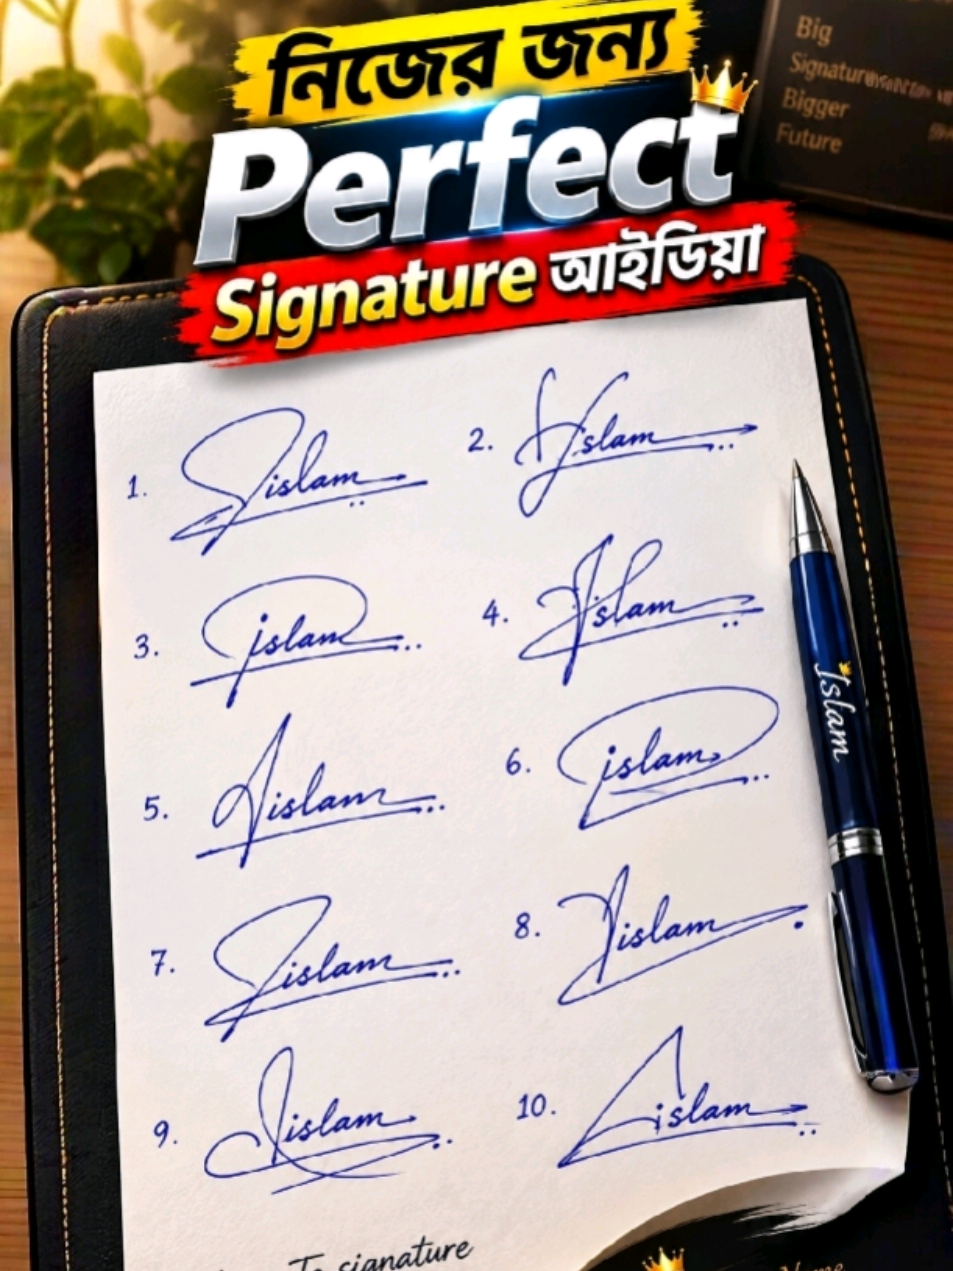 নিজের জন্য
Perfect
Signature আইডিয়া
Big
Signature
Bigger
Future
1. islam
2. islam
3. islam
4. islam
5. islam
6. islam
7. islam
8. islam
9. islam
10. islam
Islam
To signature